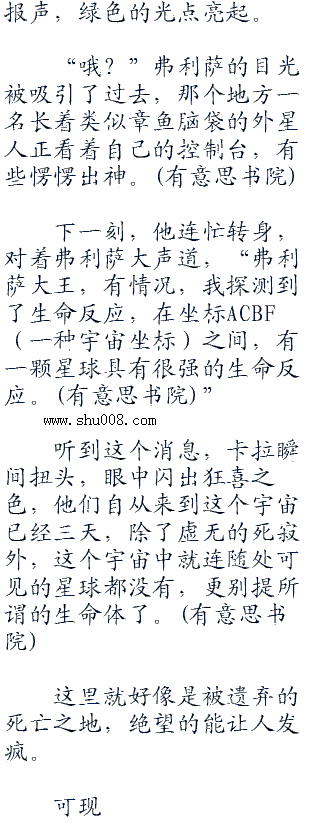 报声，绿色的光点亮起。
“哦？”弗利萨的目光
被吸引了过去，那个地方一
名长着类似章鱼脑袋的外星
人正看着自己的控制台，有
些愣愣出神。(有意思书院)
下一刻，他连忙转身，
对着弗利萨大声道，“弗利
萨大王，有情况，我探测到
了生命反应，在坐标ACBF
（一种宇宙坐标）之间，有
一颗星球具有很强的生命反
应。(有意思书院)”
www.shu008.com
听到这个消息，卡拉瞬
间扭头，眼中闪出狂喜之
色，他们自从来到这个宇宙
已经三天，除了虚无的死寂
外，这个宇宙中就连随处可
见的星球都没有，更别提所
谓的生命体了。(有意思书
院)
这里就好像是被遗弃的
死亡之地，绝望的能让人发
疯。
可现